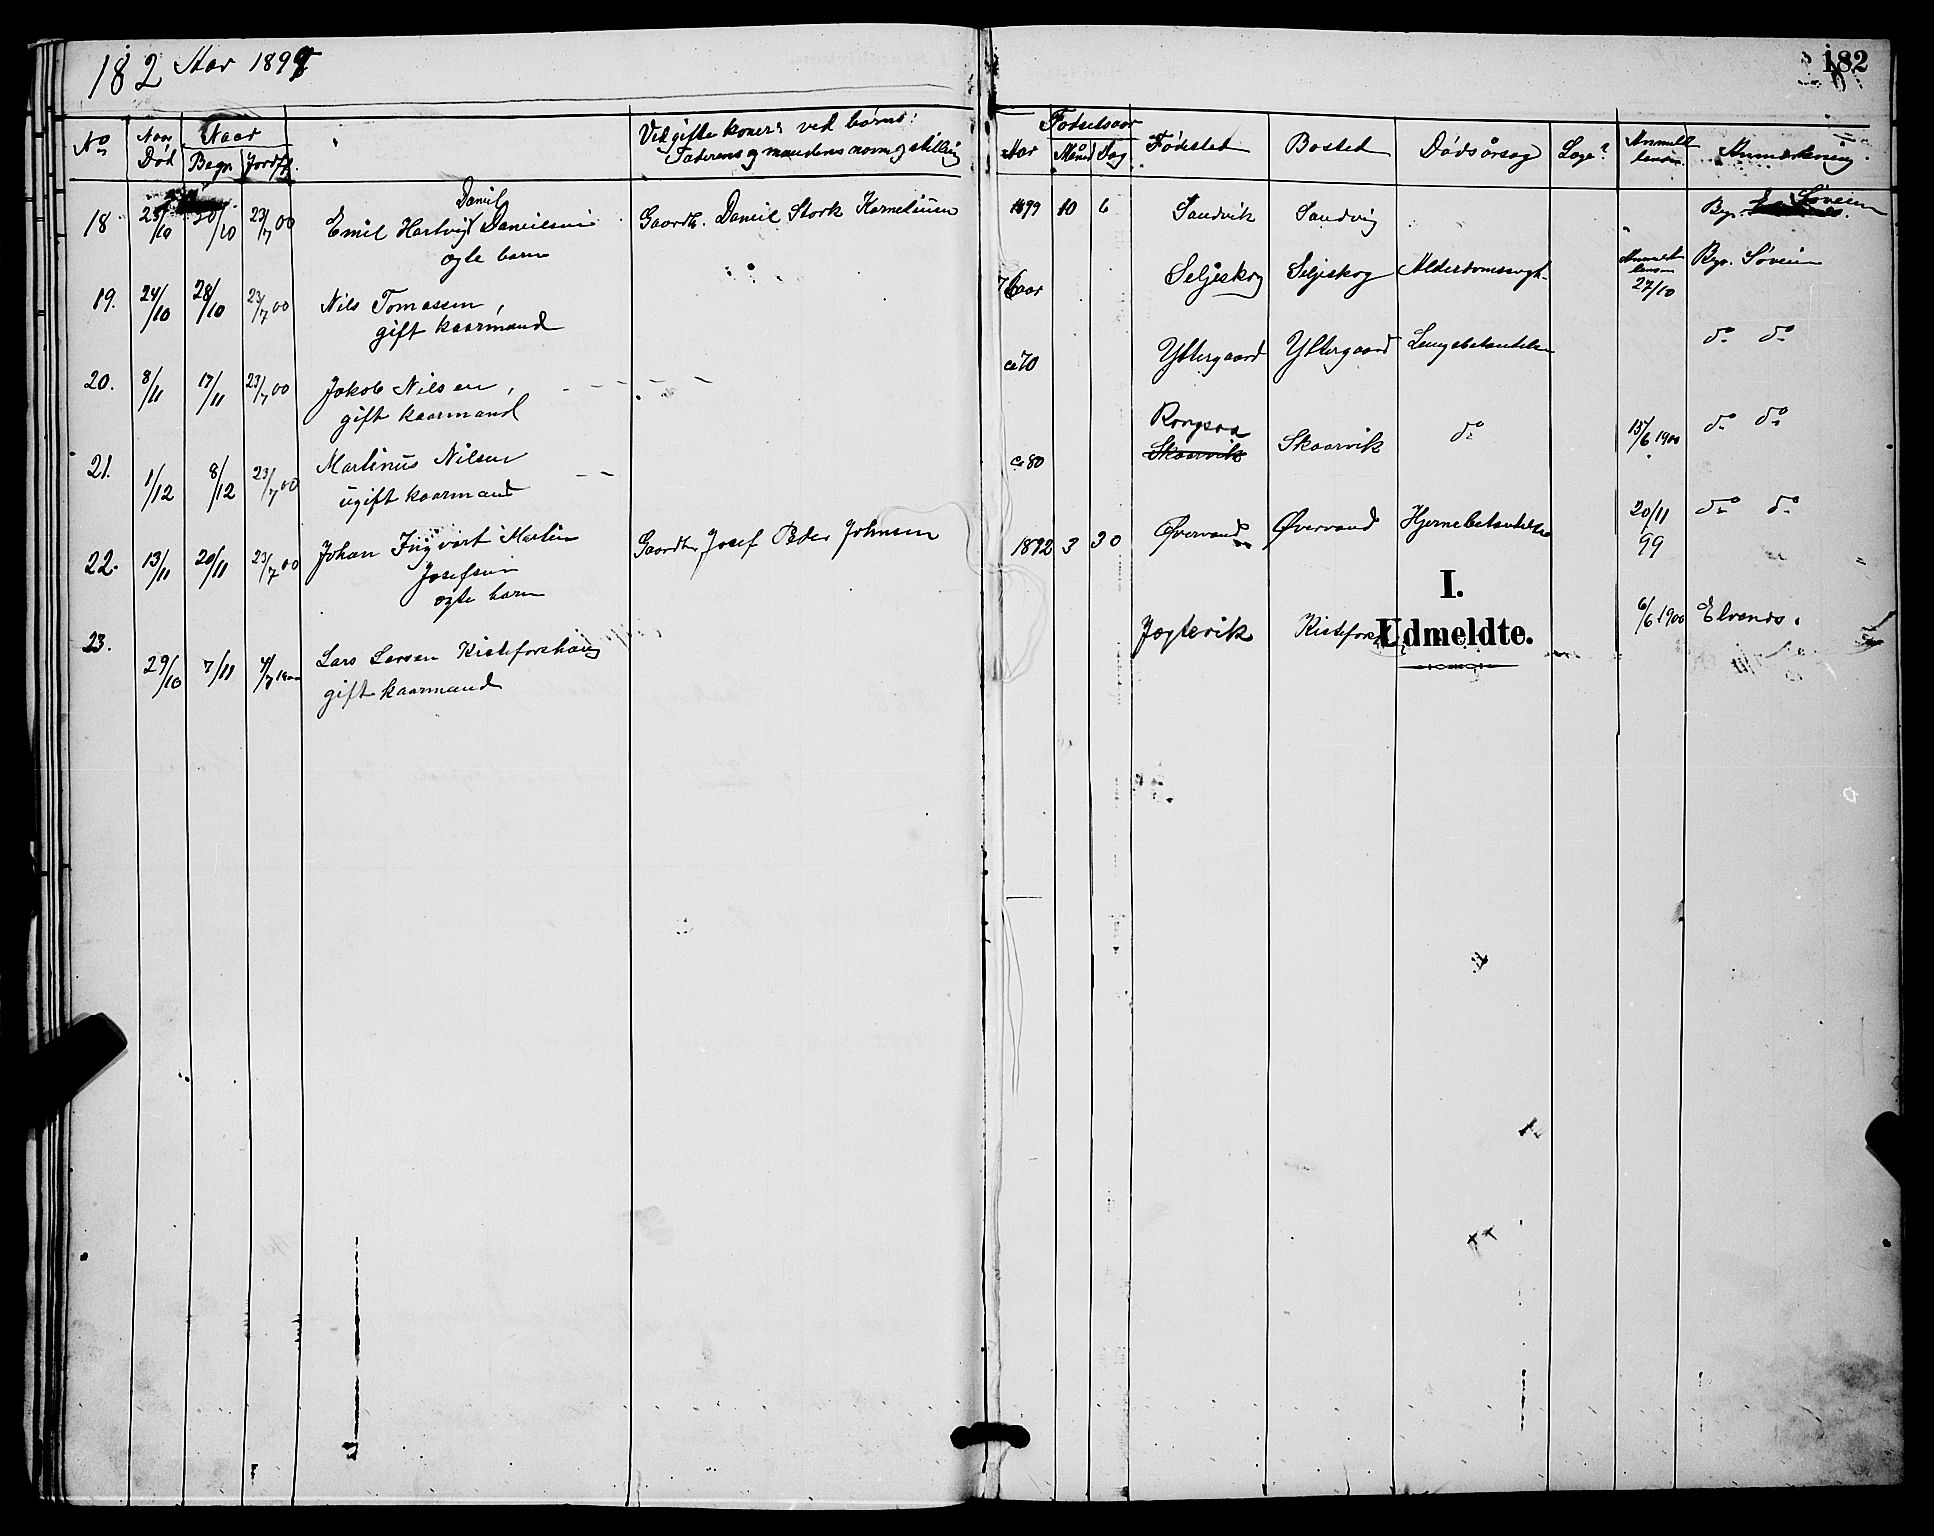 182 Aar 1899
182
No Naar Død Naar Begr. Jordf. Ved gifte koner: ved børn: Faderens og mandens navn og stilling Fødselsaar Aar Måned Dag Fødested Bosted Dødsårsag Læge? Anmeldelsen Anmærkning.
Daniel
18 23/10 30/10 23/7 00 Emil Hartvig Danielsen Gaardb. Daniel Stork Korneliusen 1899 10 6 Sandvik Sandvig Bgr. Søveien
ægte barn
19. 24/10 28/10 23/7 00 Nils Tomassen, 76 aar Seljeskog Seljeskog Alderdomssvagh. Anmeldelsen 27/10 Bgr. Søveien
gift kaarmand
20. 8/11 17/11 23/7 00 Jakob Nilsen, ca 70 Yttergaard Yttergaard Lungebetændelse do do
gift kaarmand
21. 1/12 8/12 23/7 00 Martinus Nilsen ca 80 Skaarvik Skaarvik do 15/6 1900 do do
ugift kaarmand
22. 13/11 20/11 23/7 00 Johan Ingvart Martin Gaardbr Josef Peder Johnsen 1892 3 30 Øvervand Øvervand Hjernebetændelse 20/11 99 do do
Josefsen
ægte barn
I.
Udmeldte.
23. 29/10 7/11 1900 Lars Larsen Kistefoshaug Jægtevik Kistefos 6/6 1900 Elvenes.
gift kaarmand